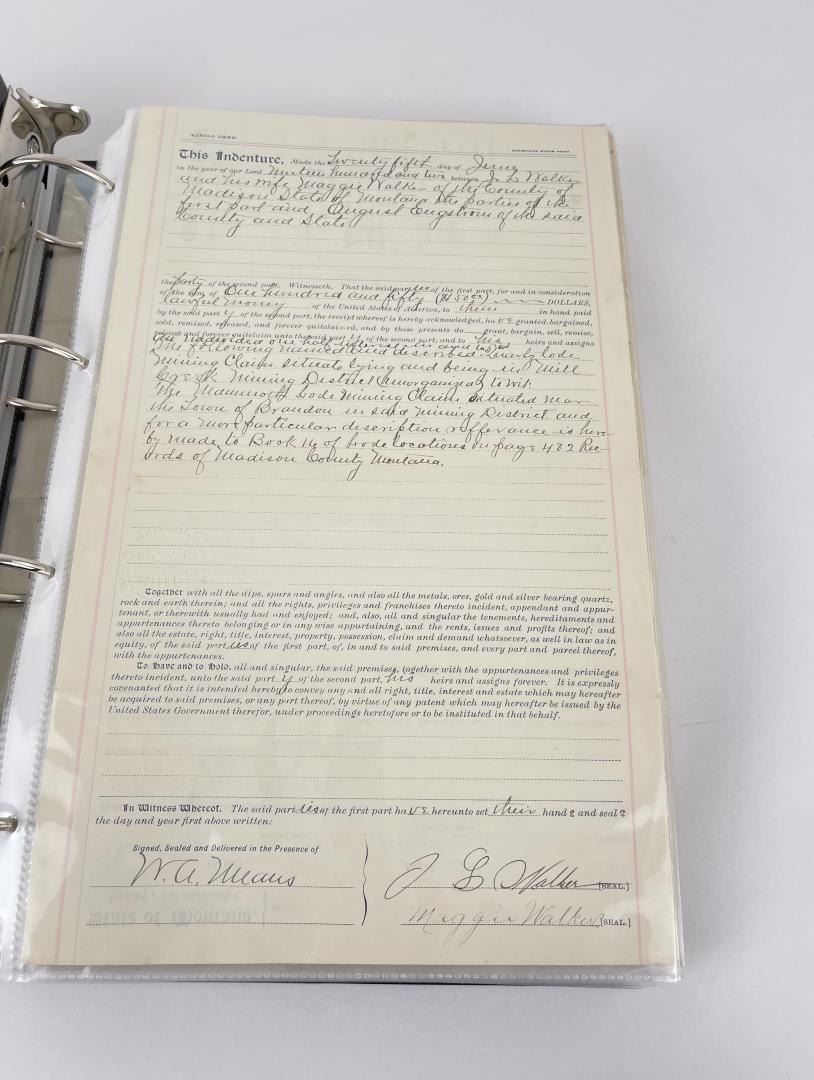 MINING DEED
This Indenture, Made the Twenty fifth day of June
in the year of our Lord Nineteen hundred and two between J. L. Walker
and his wife Maggie Walker of the County of
Madison State of Montana the parties of the
first part and August Engstrom of the said
County and State
the party of the second part, Witnesseth, That the said parties of the first part, for and in consideration
of the sum of One hundred and fifty ($150.00) DOLLARS,
lawful money of the United States of America, to them in hand paid
by the said party of the second part, the receipt whereof is hereby acknowledged, have granted, bargained,
sold, remised, released, and forever quitclaimed, and by these presents do grant, bargain, sell, remise,
release and forever quitclaim unto the said party of the second part, and to his heirs and assigns
An undivided one half interest in and to
the following named and described Quartz lode
Mining Claim situate lying and being in Mill
Creek Mining District (unorganized) to wit:
The Mammoth Lode Mining Claim situated near
the Town of Brandon in said Mining District and
for a more particular description refferance is here
by made to Book 14 of lode locations on page 482 Rec
ords of Madison County Montana.
Together with all the dips, spurs and angles, and also all the metals, ores, gold and silver bearing quartz,
rock and earth therein; and all the rights, privileges and franchises thereto incident, appendant and appur-
tenant, or therewith usually had and enjoyed; and, also, all and singular the tenements, hereditaments and
appurtenances thereto belonging or in any wise appurtaining, and the rents, issues and profits thereof; and
also all the estate, right, title, interest, property, possession, claim and demand whatsoever, as well in law as in
equity, of the said parties of the first part, of, in and to said premises, and every part and parcel thereof,
with the appurtenances.
To Have and to Hold, all and singular, the said premises, together with the appurtenances and privileges
thereto incident, unto the said party of the second part, his heirs and assigns forever. It is expressly
covenanted that it is intended hereby to convey any and all right, title, interest and estate which may hereafter
be acquired to said premises, or any part thereof, by virtue of any patent which may hereafter be issued by the
United States Government therefor, under proceedings heretofore or to be instituted in that behalf.
In Witness Whereof, The said parties of the first part have hereunto set their hands and seals
the day and year first above written:
Signed, Sealed and Delivered in the Presence of
W. A. Means
J L Walker [SEAL.]
Maggie Walker [SEAL.]